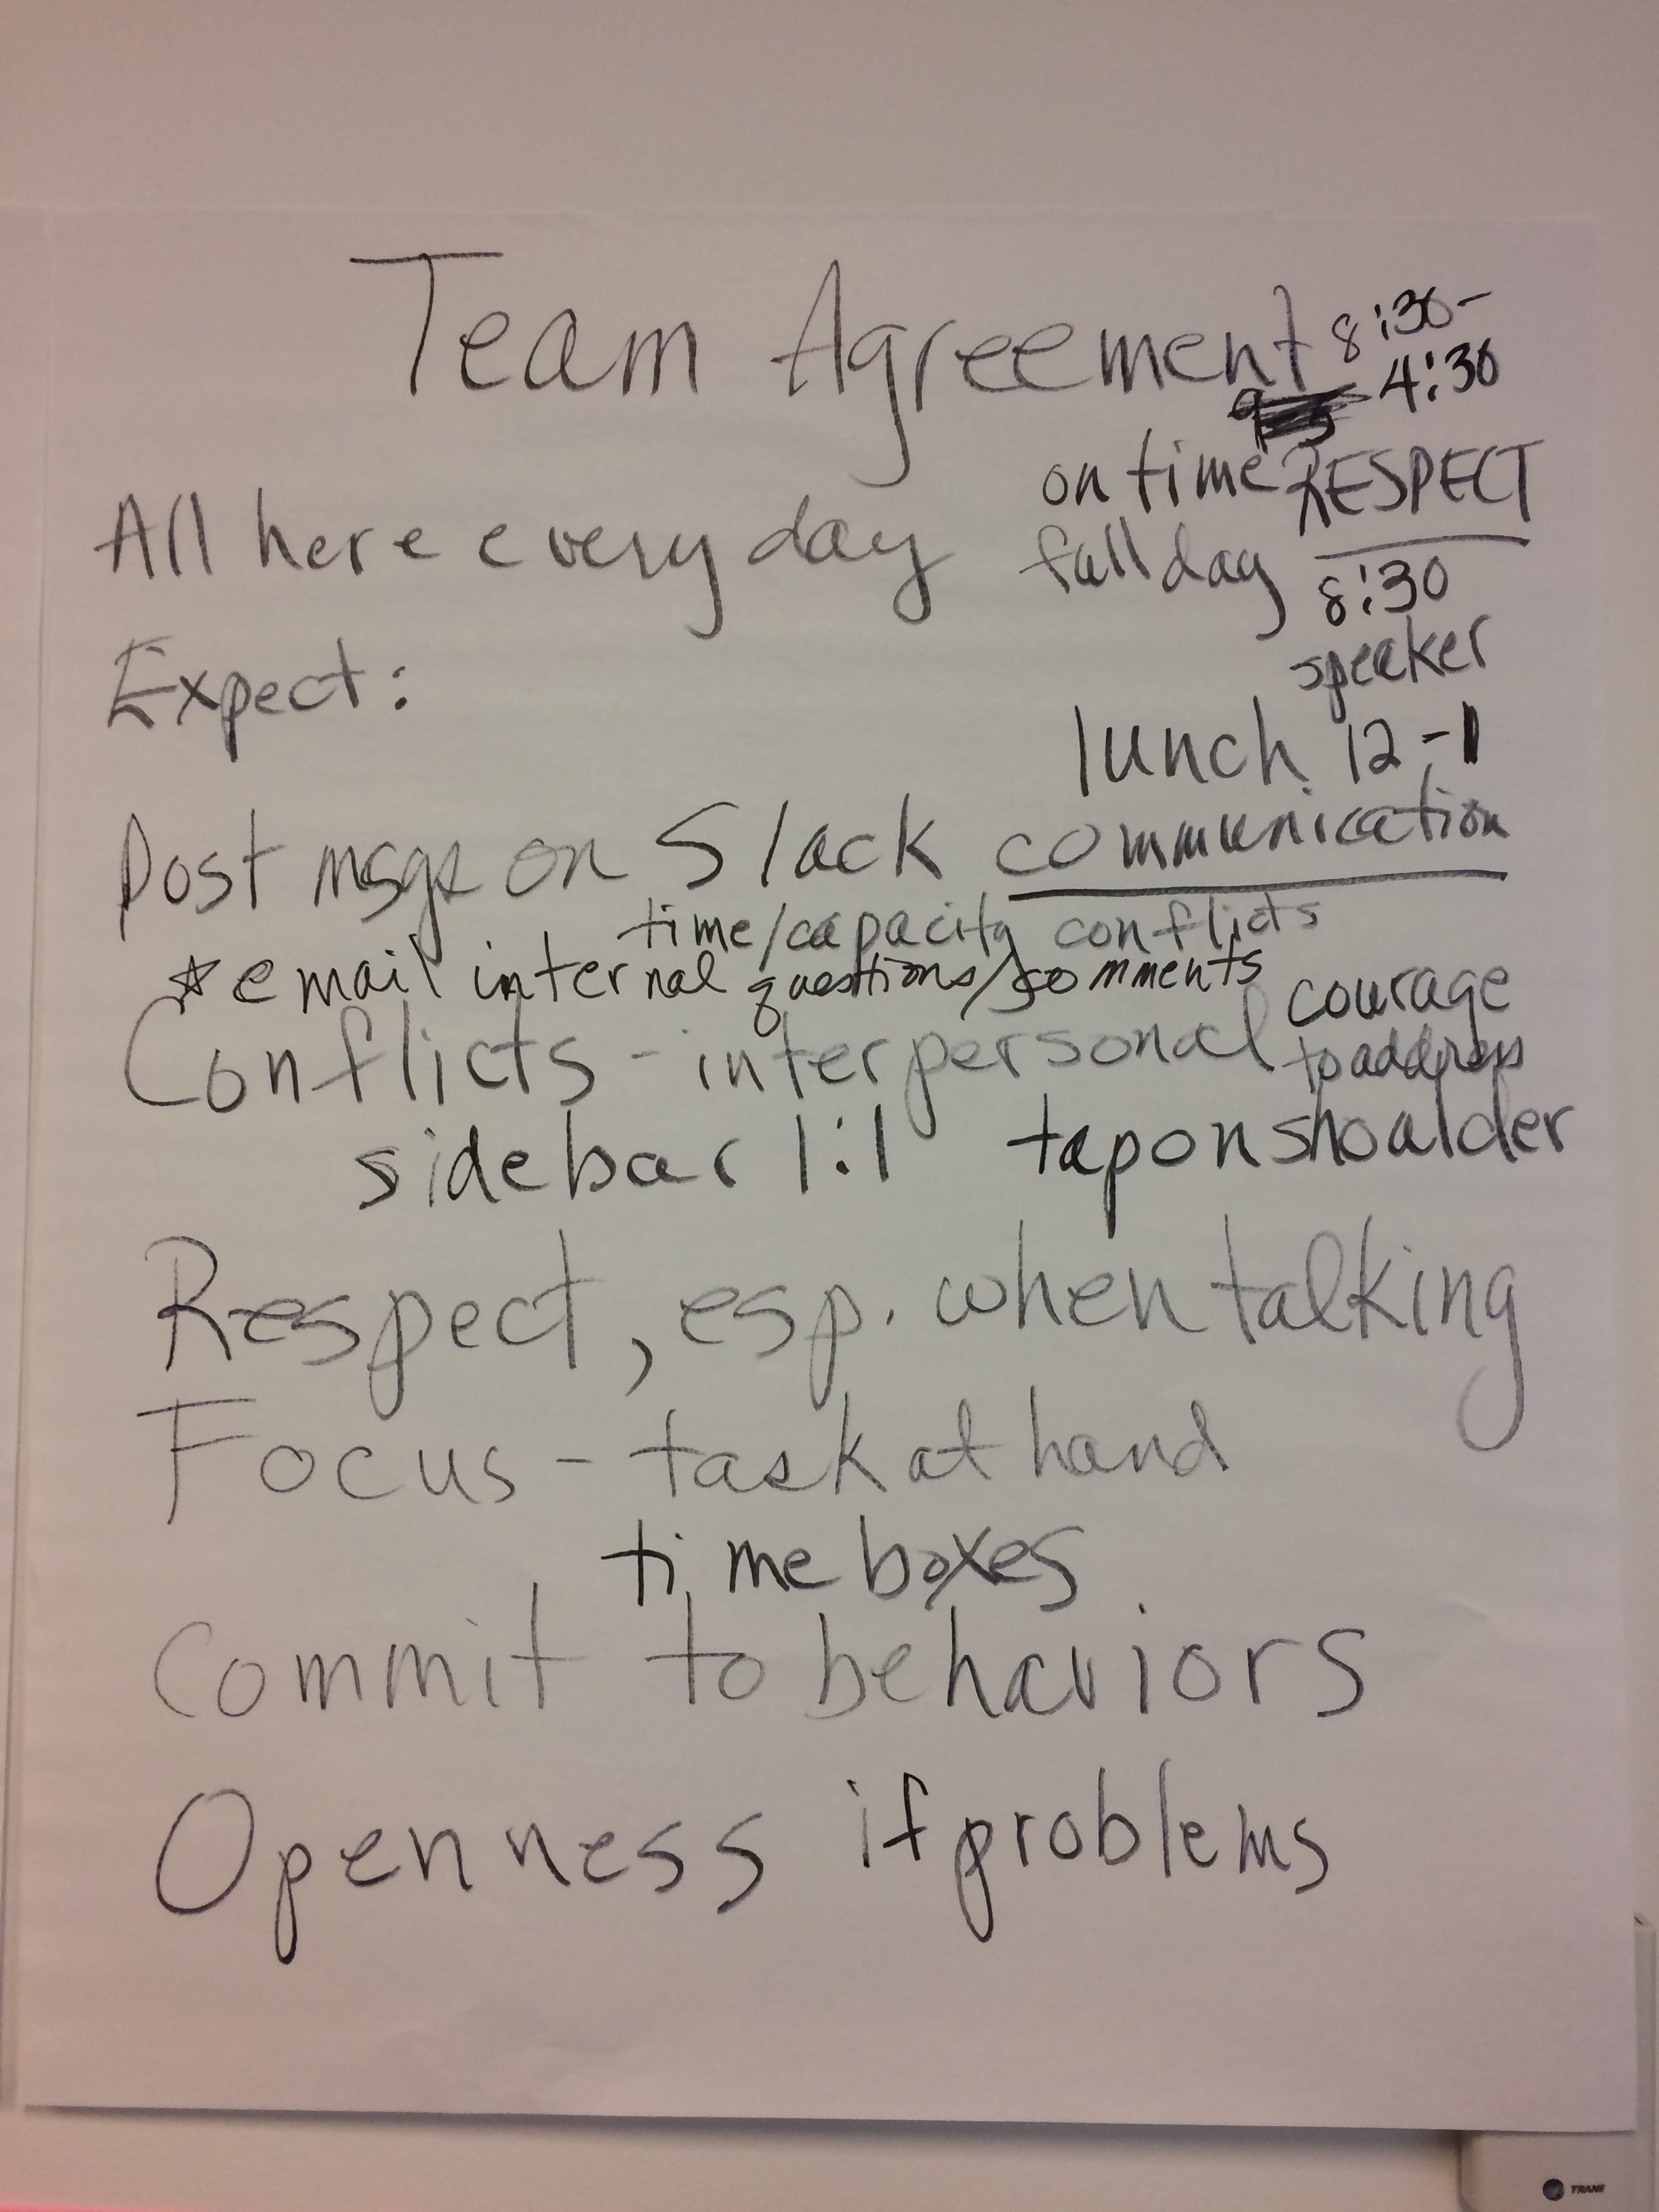 Team Agreement 8:30-
4:30
on time RESPECT
All here every day full day 8:30
speaker
Expect:
lunch 12-1
Post msgs on Slack communication
time/capacity conflicts
*email internal questions/comments
courage
Conflicts - interpersonal to address
sidebar 1:1 tap on shoulder
Respect, esp. when talking
Focus - task at hand
time boxes
Commit to behaviors
Openness if problems
TRANE